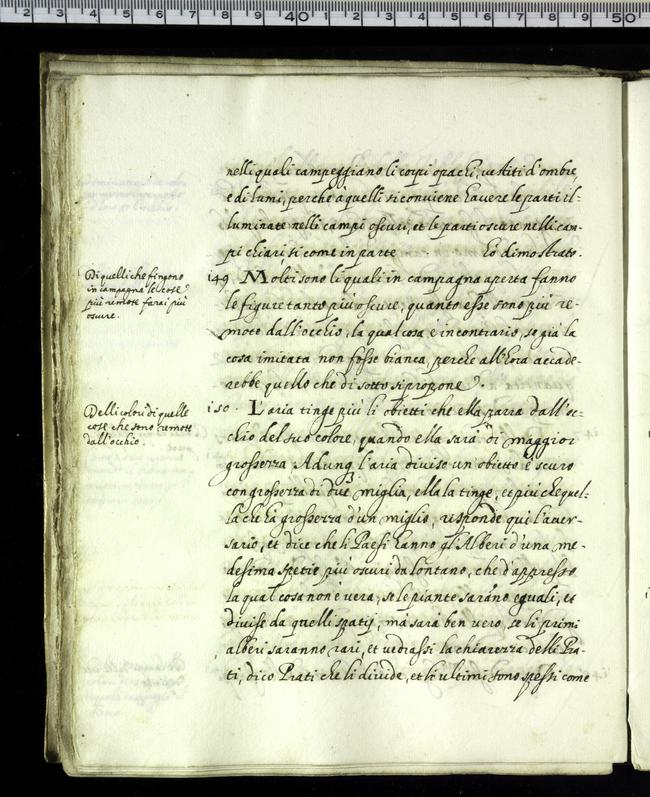 nelli quali campeggiano li corpi opachi, uestiti d'ombre,
e di lumi, perche à quelli si conuiene hauere le parti il-
luminate nelli campi oscuri, et le parti oscure nelli cam-
pi chiari, si come in parte ho dimostrato.
Di quelli che fingono
in campagna le cose
più remote farai più
oscure.
149 Molti sono li quali in campagna aperta fanno
le figure tanto più oscure, quanto esse sono più re-
mote dall'occhio, la qual cosa è in contrario, se già la
cosa imitata non fosse bianca, perche all'hora accade-
rebbe quello che di sotto si propone.
Delli colori di quelle
cose che sono remote
dall'occhio.
150. L'aria tinge più li obietti che ella parra dall'oc-
chio del suo colore, quando ella sarà di maggior
grossezza, Adunq. l'aria diviso un obietto è scuro
con grossezza di due miglia, ella la tinge, et più che quel-
la che hà grossezza d'un miglio, risponde qui l'auer-
sario, et dice che li Paesi hanno gl'Alberi d'una me-
desima spetie più oscuri da lontano, che d'appresso
la qual cosa non è vera, se le piante saràno eguali, et
divise da quelli spatij, mà sarà ben vero, se li primi
alberi saranno rari, et uedrassi la chiarezza delli Pra-
ti, dico Prati che li divide, et li ultimi sono spessi come